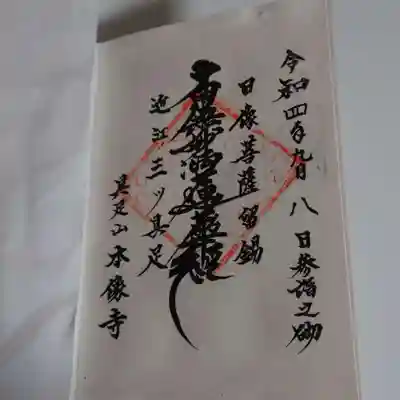 令和四年九月八日参詣之砌
日像菩薩留錫
南無妙法蓮華經
近江三ツ具足
具足山本像寺